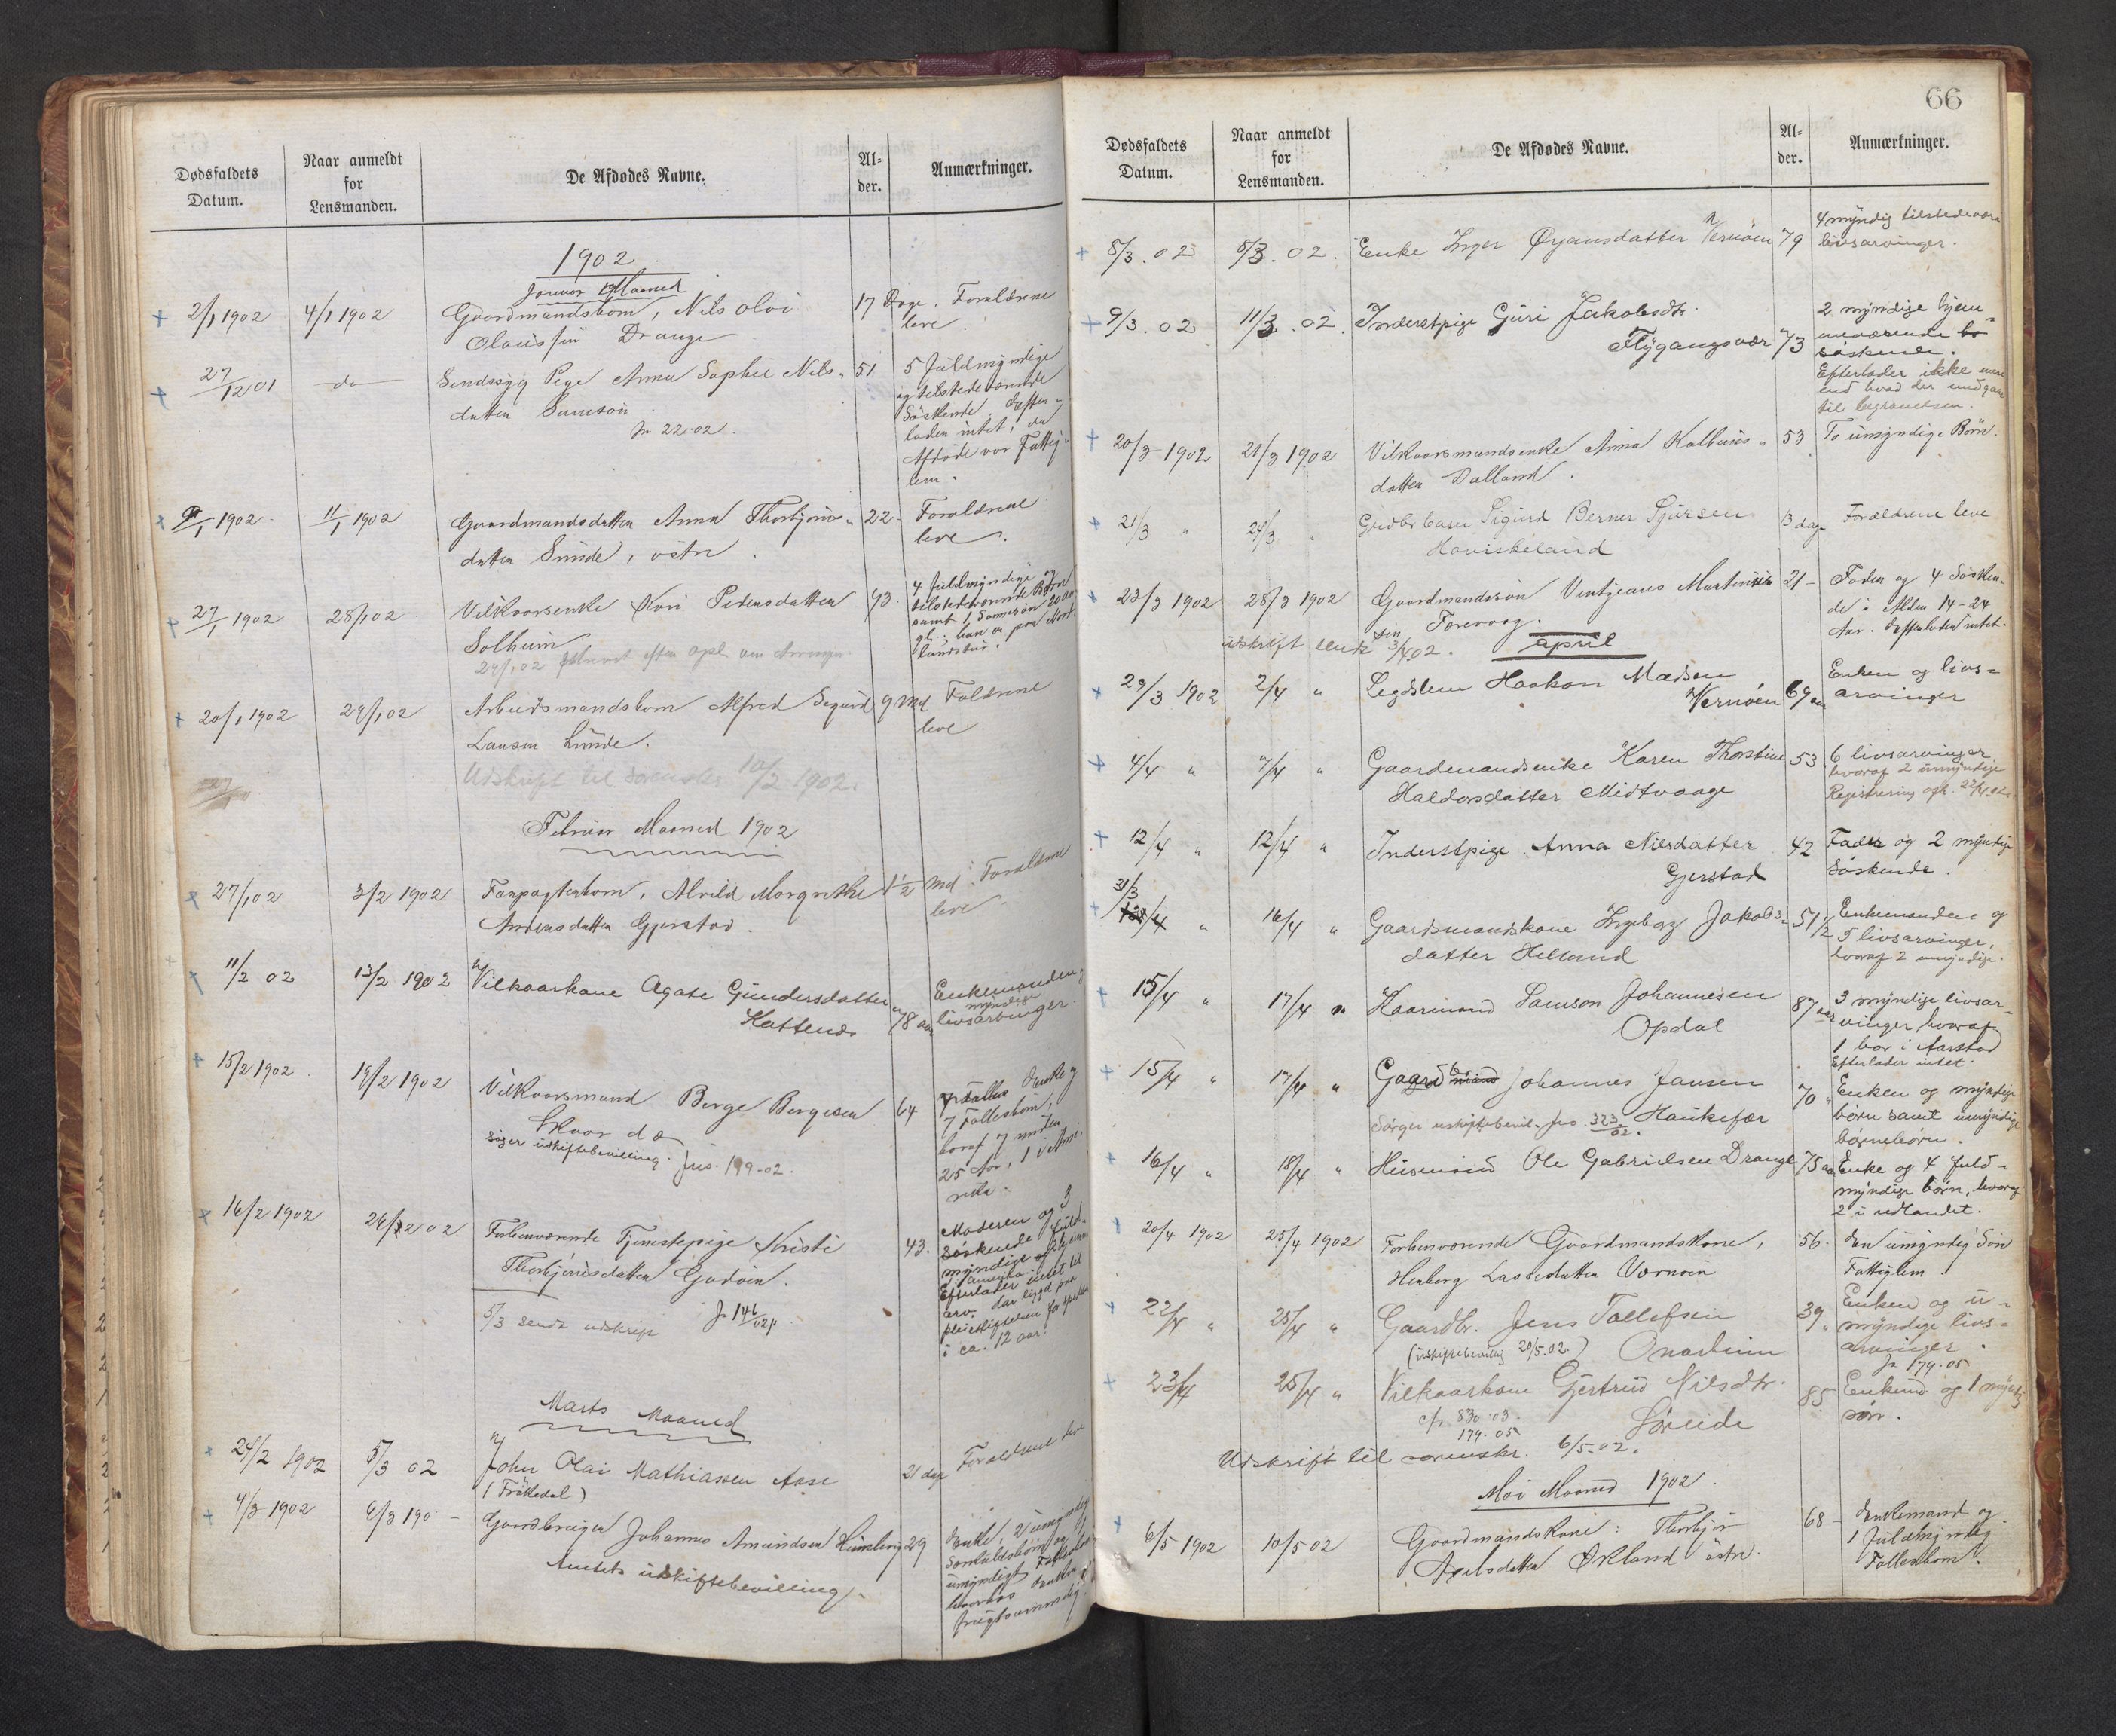 Dødsfaldets Datum.
Naar anmeldt for Lensmanden.
De Afdødes Navne.
Al-
der.
Anmærkninger.
1902
Januar Maaned
2/1 1902 4/1 1902 Gaardmandsbarn, Nils Olai 17 Dage. Forældrene
Olaussen Drange leve.
27/12 01 do Sindssyg Pige Anna Sophie Nils- 51 5 fuldmyndige
datter Samson og tilstedeværende
Jr 22-02. Søskende. Efter-
lader intet, da
Afdøde var Fattig-
lem.
9/1 1902 11/1 1902 Gaardmandsdatter Anna Thorbjørns- 22 Forældrene
datter Sunde, østre. leve.
27/1 1902 28/1 02 Vilkaarsenke Kari Pedersdatter 93. 4 fuldmyndige og
Solheim tilstedeværende Børn
samt 1 Sønnesøn 20 aar
gl.; han er paa Nord-
landstur.
20/1 1902 29/1 02 Arbeidsmandsbarn Alfred Sigurd 9 Md Forældrene
Larsen Lunde. leve
Udskrift til Sorenskr 10/2 1902.
Februar Maaned 1902
27/1 02 3/2 1902 Forpagterbarn, Alvild Margrethe 1 1/2 Md. Forældrene
Andersdatter Gjerstad. leve
11/2 02 13/2 1902 Vilkaarkane Agate Gundersdatter 78 aar Enkemanden og
Hattenes myndige
livsarvinger.
15/2 1902 19/2 1902 Vilkaarsmand Børge Børgesen 64 Enke og
Skaar 7 Fællesbørn,
søger uskiftebevilling. Jns. 199-02. hvoraf 7 under
25 Aar, 1 i Ame-
rika.
16/2 1902 24/2 02 Forhenværende Tjenestepige Kristi 43. Moderen og 3
Thorbjørnsdatter Godøen. Søskende fuld-
myndige og
i Amerika.
Efterlader intet til
arv. Har ligget paa
pleiestiftelsen for spedalske
i ca. 12 aar.
5/3 sendt udskrift Jr 146/02
Marts Maaned
24/2 1902 5/3 02 John Olai Mathiassen Aase 21 dage Forældrene leve
(Frøkedal)
4/3 1902 6/3 190 - Gaardbruger Johannes Amundsen Heimberg 29 Enke, 2 umyndige
Amtets uskiftebevilling. Samkuldsbørn og
umyndigt
hvorhos Enken er
frugtsommelig.
66
Dødsfaldets Datum.
Naar anmeldt for Lensmanden.
De Afdødes Navne.
Al-
der.
Anmærkninger.
5/3. 02 5/3. 02. Enke Inger Ørjansdatter Vernøen 79 4 myndig tilstedevære
livsarvinger.
9/3. 02 11/3. 02. Inderstpige Guri Jakobsdtr. 2 myndige hjem-
Flygangsvær 73 meværende
søskende.
Efterlader ikke mere
end hvad der undgaar
til begravelsen.
20/3 1902 21/3 1902 Vilkaarsmandsenke Anna Kolbens- 53 To umyndige Børn.
datter Dalland.
21/3 " 24/3 " Grdbr barn Sigurd Berner Sjursen 13 dage Forældrene leve
Haviskeland
23/3 1902 25/3 1902 Gaardmandssøn Ventzeans Martensen 21 - Fader og 4 Søsken-
Færevaag. de i Alder 14-24
Aar. Efterlader intet.
udskrift sendt sin 3/4 02.
April
29/3 1902 2/4 " Legdslem Haakon Madsen Enken og livs-
Vernøen 69 aar arvinger
4/4 " 7/4 " Gaardmandsenke Karen Thorstine 53 6 livsarvinger,
Haldorsdatter Midtvaage hvoraf 2 umyndige
Registrering oph. 22/4 02.
12/4 " 12/4 " Inderstpige Anna Nilsdatter 42 Fader og 2 myndige
Gjerstad Søskende.
31/3 " 16/4 " Gaardsmandskone Ingeborg Jakobs- 51 1/2 Enkemanden og
datter Helland 5 livsarvinger,
hvoraf 2 umyndige.
15/4 " 17/4 " Kaarmand Samson Johannesen 87 aar 3 myndige livsar-
Opdal vinger, hvoraf
1 bor i Aarstad
Efterlader intet.
15/4 " 17/4 " Gaardbr Johannes Jansen 70 " Enken og myndige
Sørger uskiftebevil. Jns. 323/02. Haukefær børn samt umyndige
børnebørn.
16/4 " 18/4 " Husmand Ole Gabrielsen Drange 75 aar Enke og 4 fuld-
myndige børn, hvoraf
2 i udlandet.
20/4 1902 25/4 1902 Forhenværende Gaardmandskone, 56. En umyndig Søn
Herborg Lassesdatter Vernøen Fattiglem.
22/4 " 25/4 " Gaardbr. Jens Tollefsen 39 " Enken og u-
(uskiftebevilling 20/5.02.) Onarheim myndige livs-
arvinger.
Jr 179.05
23/4 25/4 " Vilkaarkone Gjertrud Nilsdtr. 85 Enkem og 1 myndig
cfr. 830.03. Søreide søn.
179.05
Udskrift til sorenskr. 6/5.02.
Mai Maaned 1902.
6/5 1902 10/5 02 Gaardmandskone: Thorbjør 68 - Enkemand og
Axelsdatter Økland østre. 1 fuldmyndig
Fællesbarn.